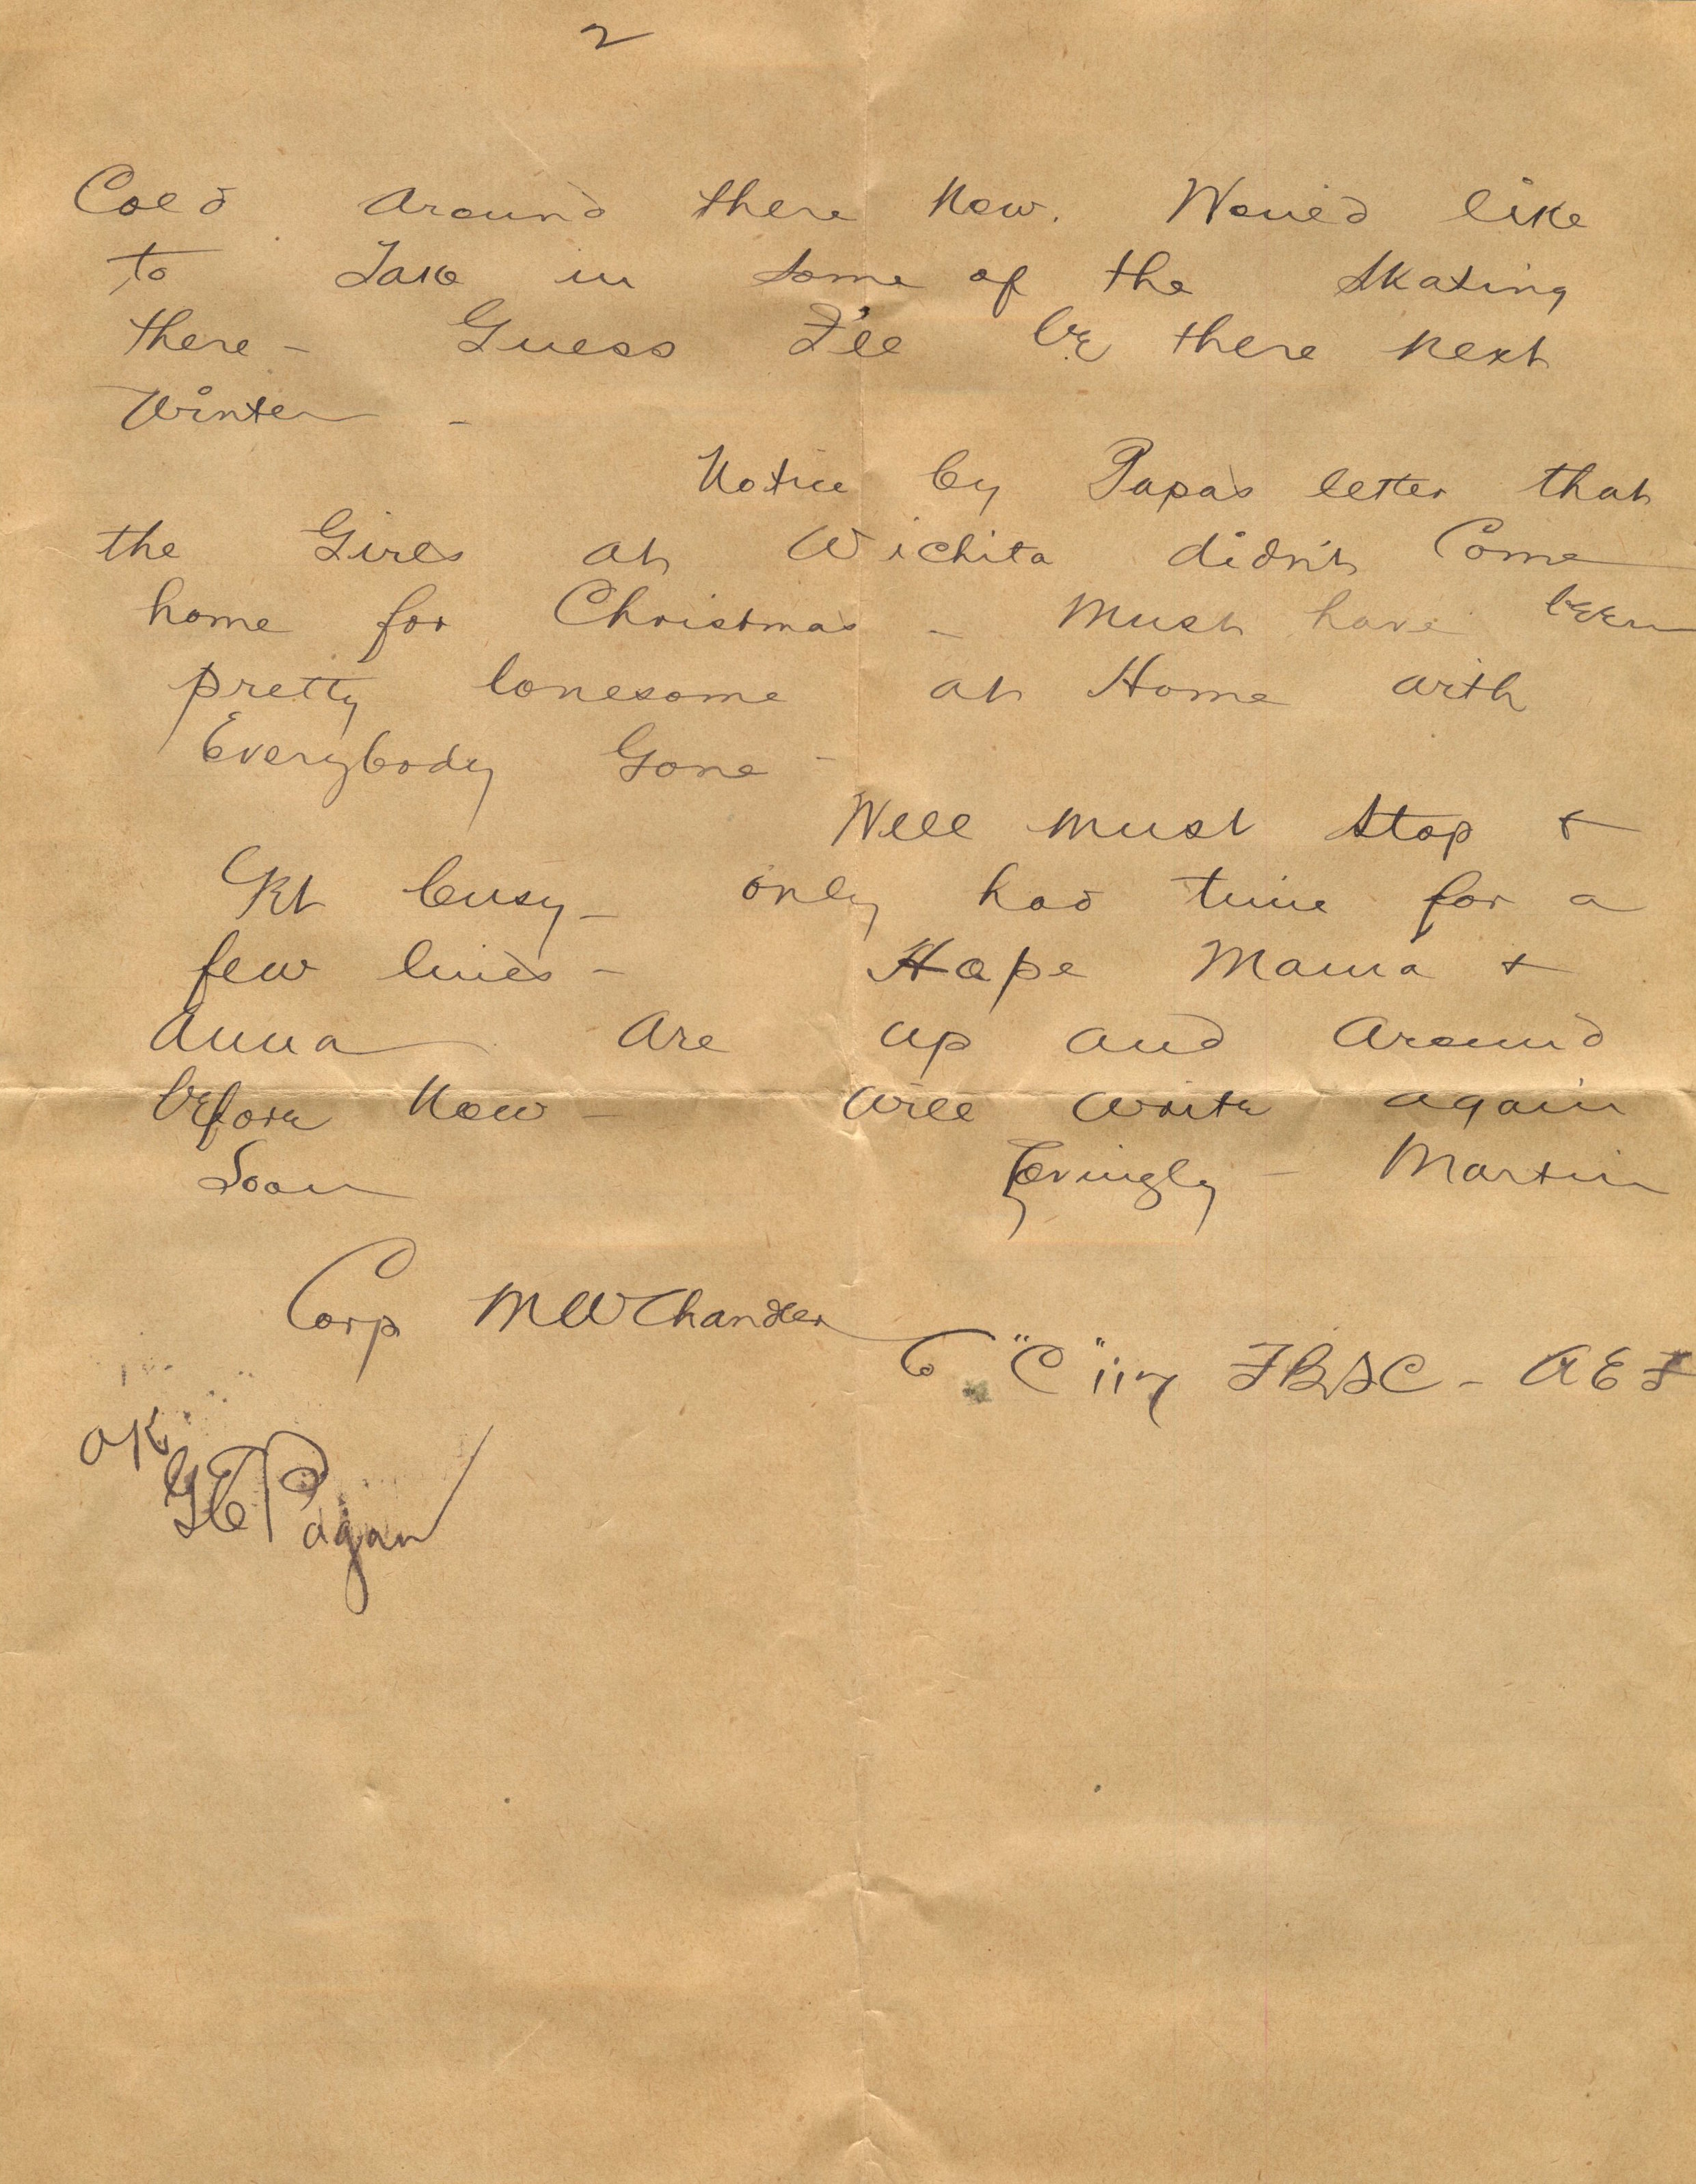 2
Cold Around there Now. Would like
to Take in some of the skating
there - Guess I'll be there next
Winter -
Notice by Papa's letter that
the Girls at Wichita didn't Come
home for Christmas - Must have been
pretty lonesome at Home with
Everybody Gone -
Well must stop &
Get busy - only had time for a
few lines - Hope Mama &
Anna Are up and Around
before Now - Will write again
Soon Lovingly - Martin
Corp MW Chandler
Co "C" 117 FBSC - AEF
OK
GE Pagan